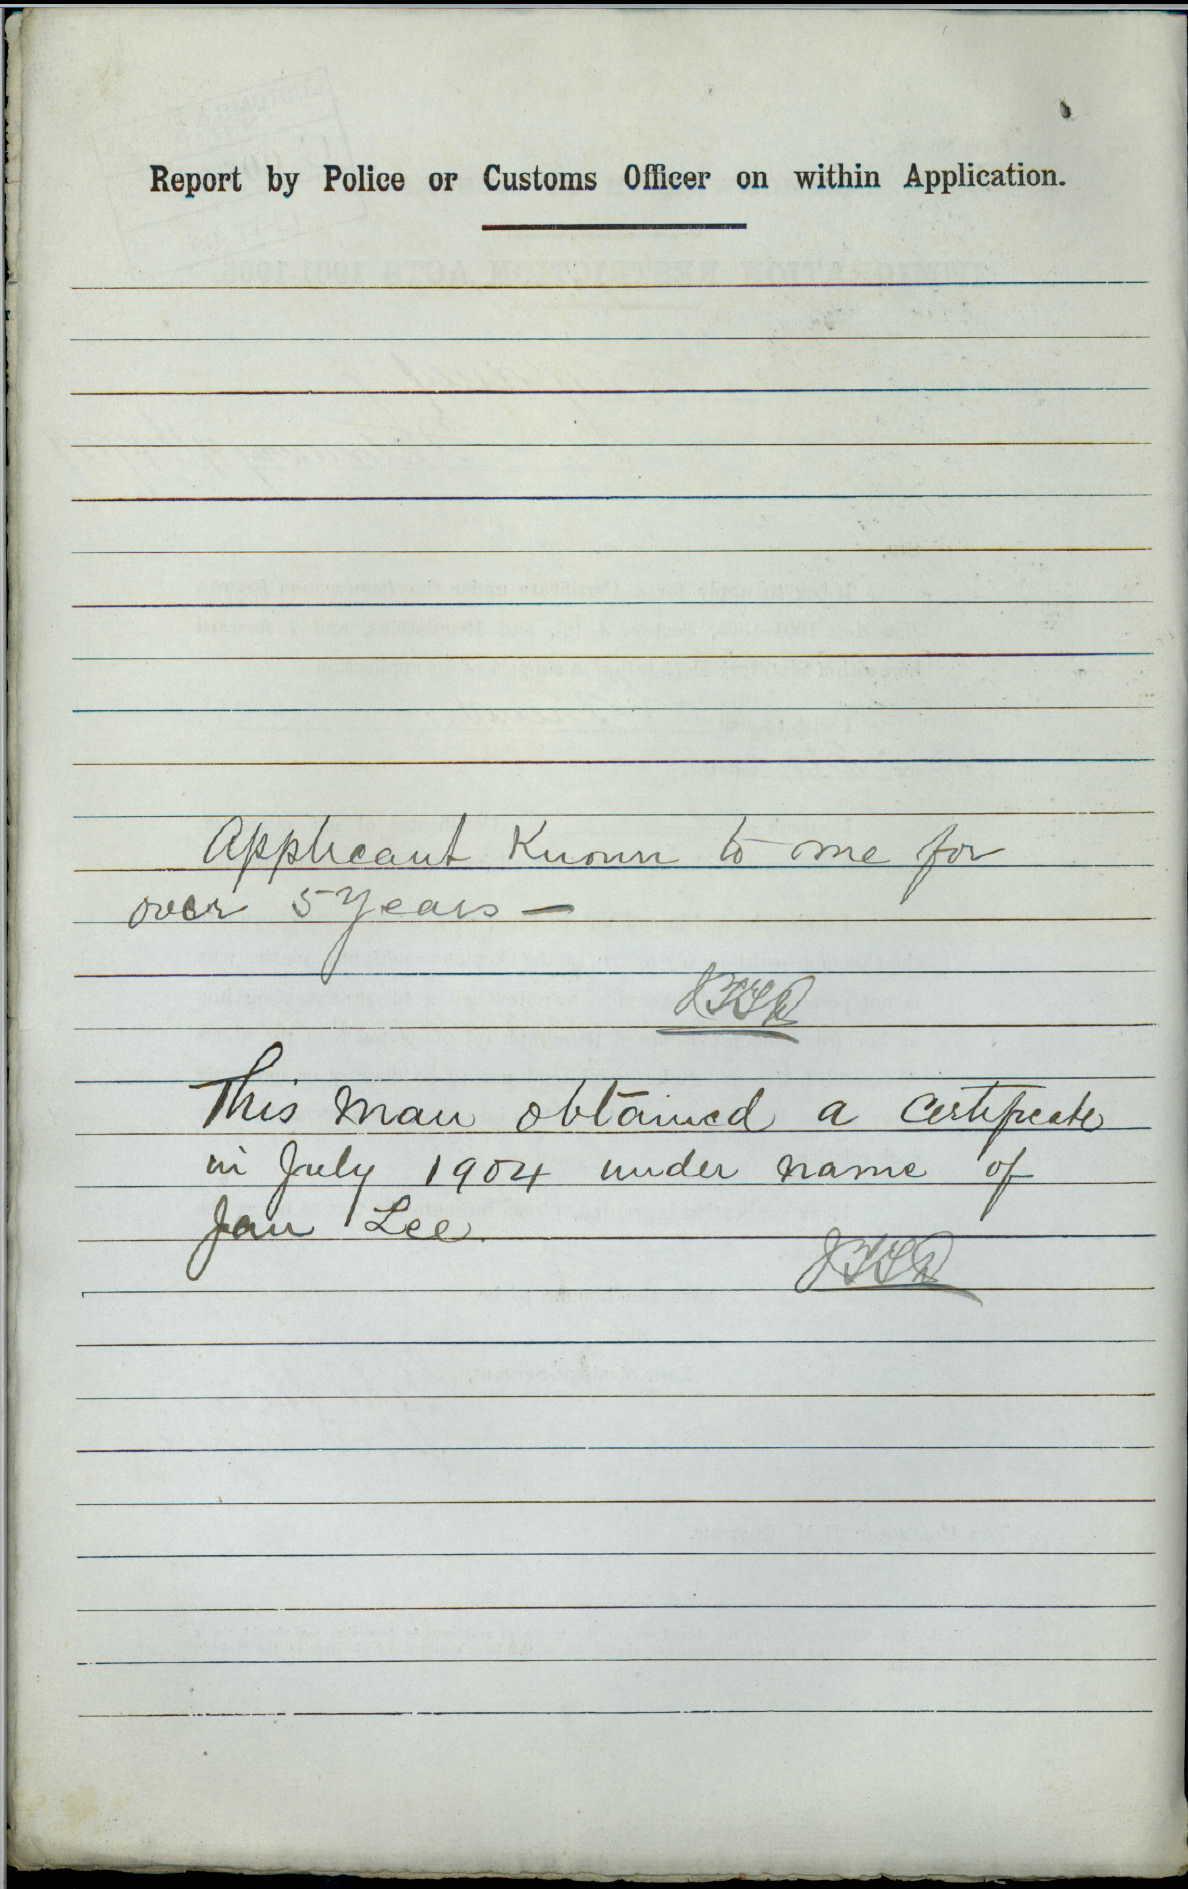 Report by Police or Customs Officer on within Application.
Applicant Known to me for
over 5 years —
This man obtained a Certificate
in July 1904 under name of
Jan Lee.